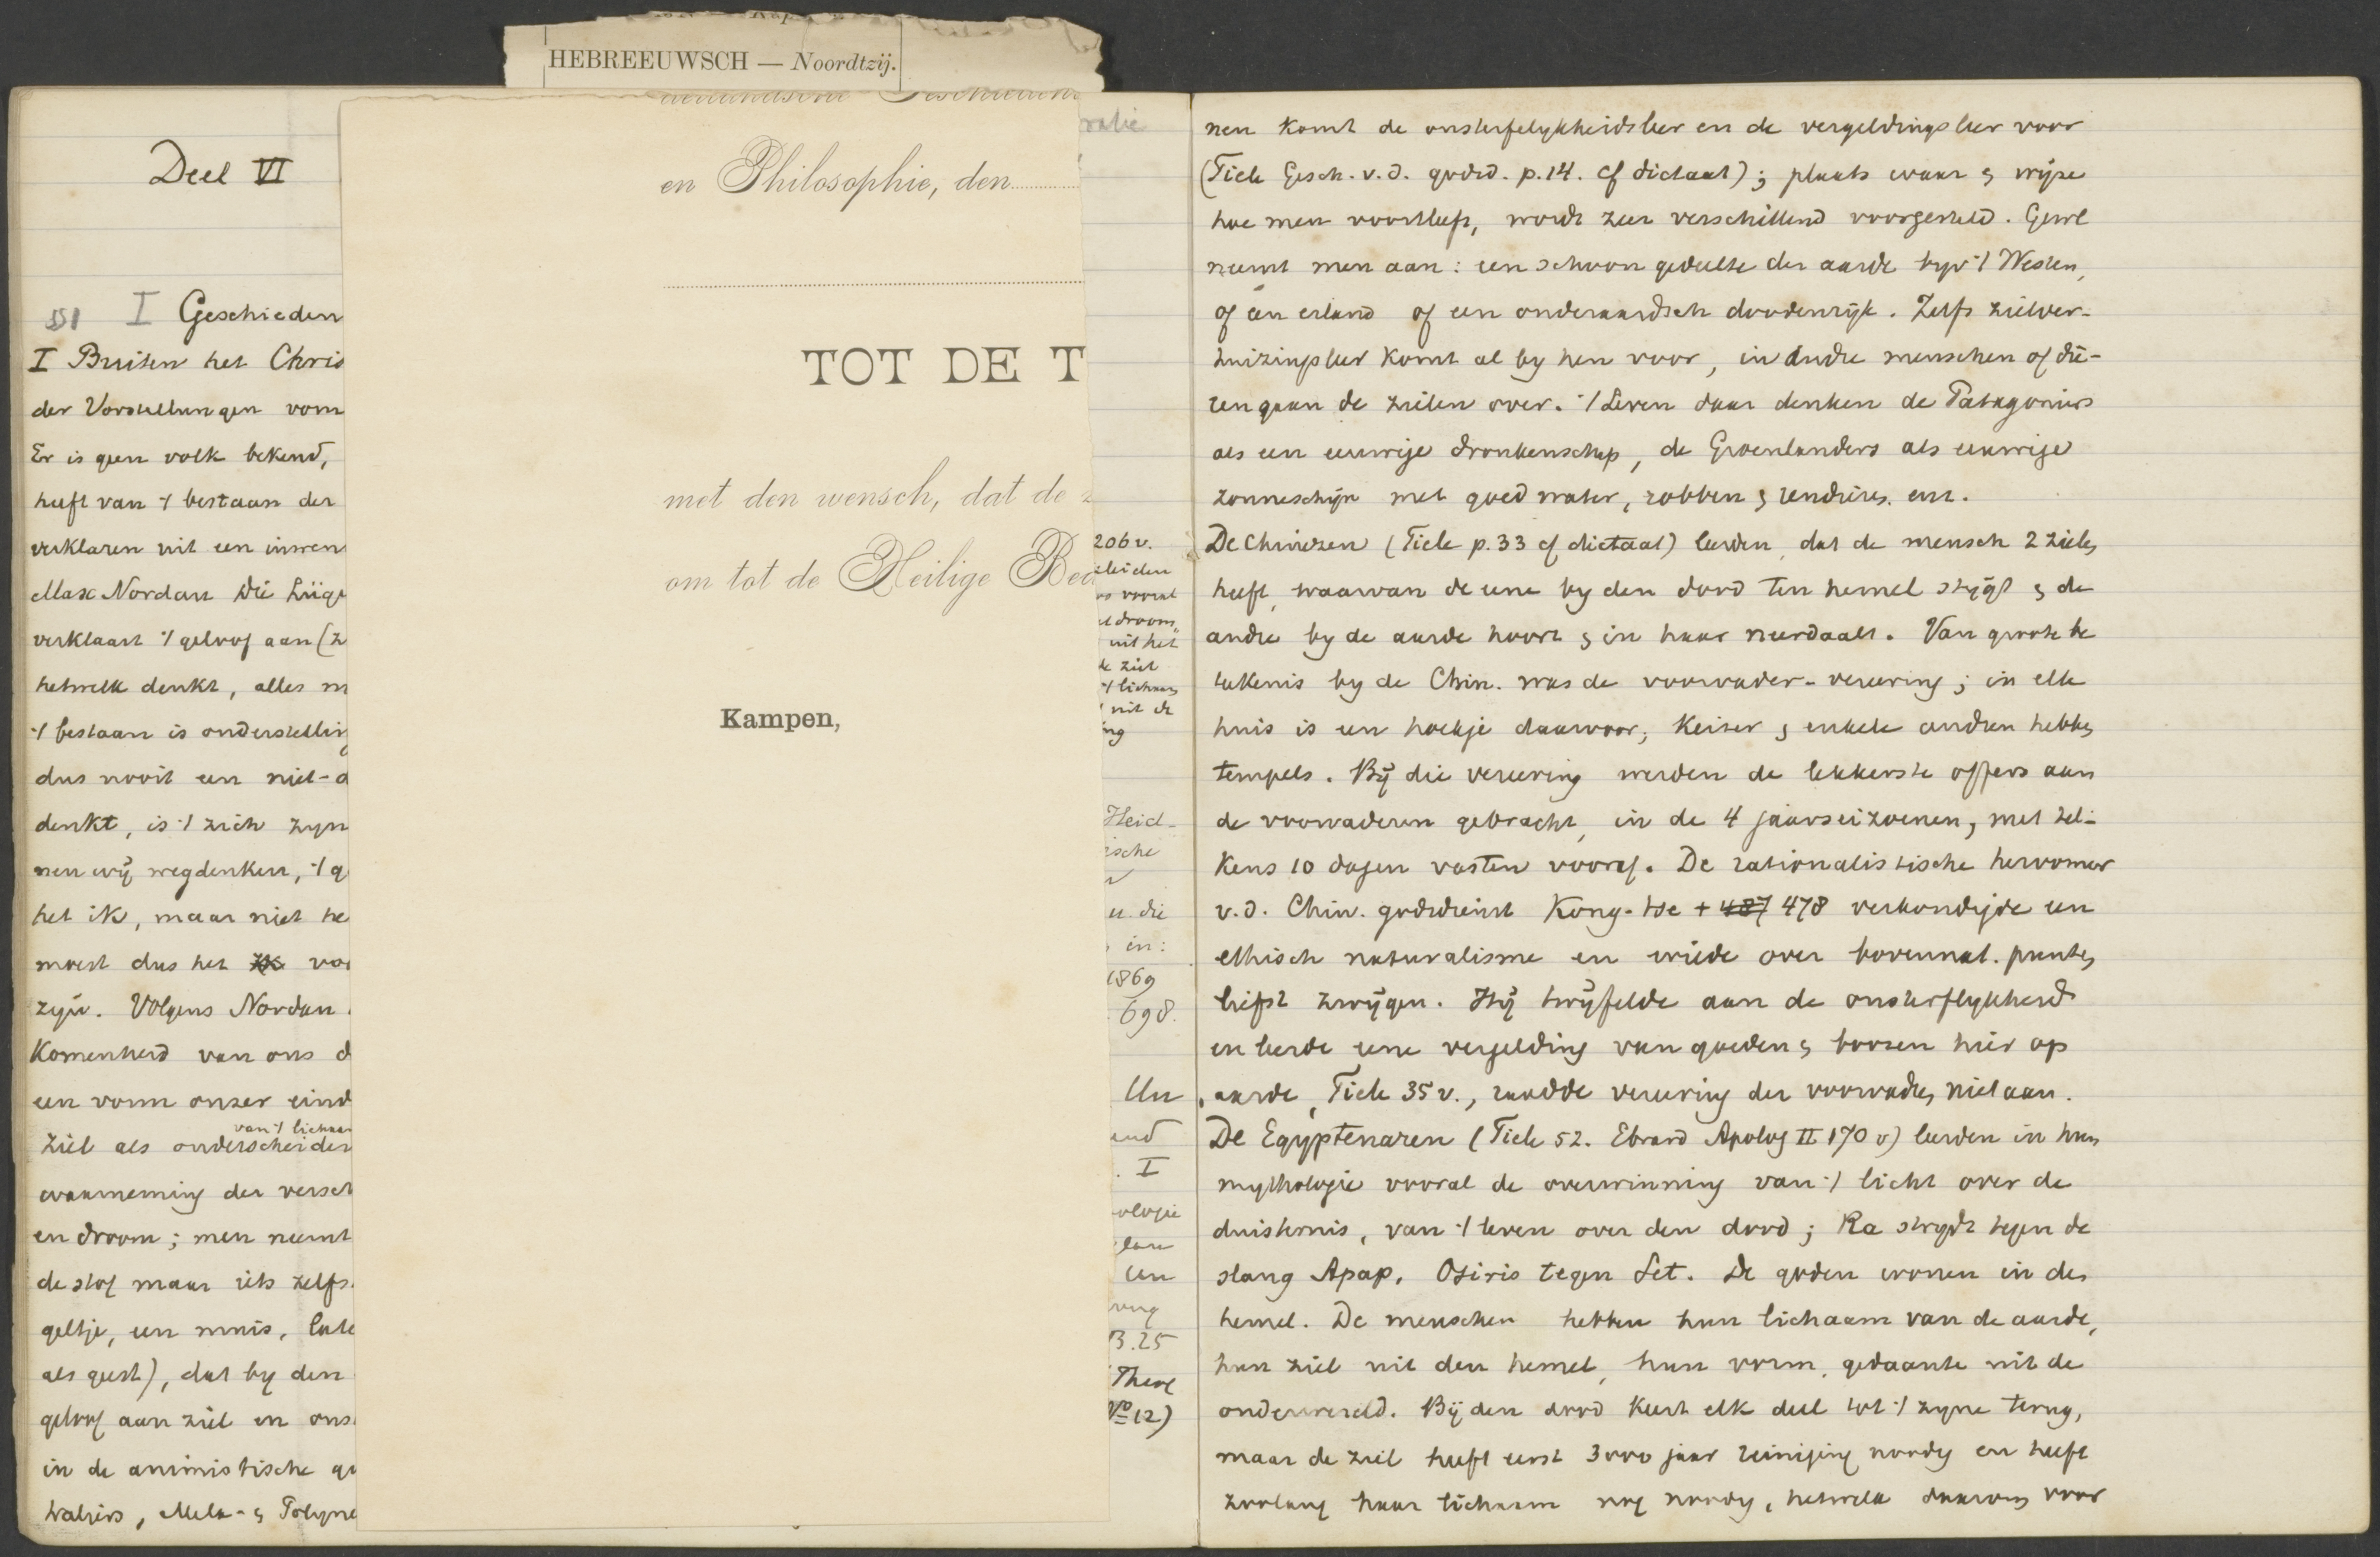 HEBREEUWSCH — Noordtzij.
Deel VI
§51 I Geschieden
I Buiten het Chris
der Vorstellungen vom
Er is geen volk bekend,
heeft van 't bestaan der
verklaren uit een inwen
Max Nordau Die Lüge
verklaart 't geloof aan (z
hetwelk denkt, alles m
't bestaan is onderstelling
dus nooit een niet-
denkt, is 't zich zyn
nen wij wegdenken, 't g
het ik, maar niet he
moest dus het
zyn. Volgens Nordau
komenheid van ons d
een vorm onzer eind
van 't lichaam
ziel als onderscheiden
waarneming der versch
en droom; men neemt
de stof maar iets zelfs
geltje, een muis,
als geest), dat by den
geloof aan ziel en ons
in de animistische
en Philosophie, den
TOT DE T
met den wensch, dat de z
om tot de Heilige Bed
Kampen,
206 v.
vooral
droom,
uit het
de ziel
't lichaam
uit de
ing
Heid-
ische
u. die
in:
1869
698.
Un
und
I
ologie
Un
B.25
Theol
No 12)
nen komt de onsterfelykheidsleer en de vergeldingsleer voor
(Tiele Gesch. v.d. godsd. p.14. cf dictaat); plaats waar & wijze
hoe men voortleeft, wordt zeer verschillend voorgesteld. Gewl
neemt men aan: een schoon gedeelte der aarde bijv 't Westen,
of een eiland of een onderaardsch doodenrijk. Zelfs zielver-
huizingsleer komt al by hen voor, in andre menschen of die-
ren gaan de zielen over. 't Leven daar denken de Patagoniers
als een eeuwige dronkenschap, de Groenlanders als eeuwige
zonneschijn met goed water, robben & rendieren enz.
De Chineezen (Tiele p.33 cf dictaat) leerden, dat de mensch 2 zielen
heeft, waarvan de eene by den dood ten hemel stijgt & de
andre by de aarde hoort & in haar neerdaalt. Van groote be
teekenis by de Chin. was de voorvader-vereering; in elk
huis is een hoekje daarvoor; keizer & enkele andren hebben
tempels. Bij die vereering werden de lekkerste offers aan
de voorvaderen gebracht, in de 4 jaarseizoenen, met tel-
kens 10 dagen vasten vooraf. De rationalistische hervormer
v.d. Chin. godsdienst Kong-tse + 487 478 verkondigde een
ethisch naturalisme en wilde over bovennat. punten
liefst zwijgen. Hij twijfelde aan de onsterflykheid
en leerde eene vergelding van goeden & boozen hier op
aarde, Tiele 35 v., raadde vereering der voorvaders niet aan.
De Egyptenaren (Tiele 52. Ebrard Apolog II 170 v) leerden in hun
mythologie vooral de overwinning van 't licht over de
duisternis, van 't leven over den dood; Ra strydt tegen de
slang Apap, Osiris tegen Set. De goden wonen in den
hemel. De menschen hebben hun lichaam van de aarde,
hun ziel uit den hemel, hun vorm, gedaante uit de
onderwereld. Bij den dood keert elk deel tot 't zyne terug,
maar de ziel heeft eerst 3000 jaar reiniging noodig en heeft
zoolang haar lichaam nog noodig, hetwelk daarom voor